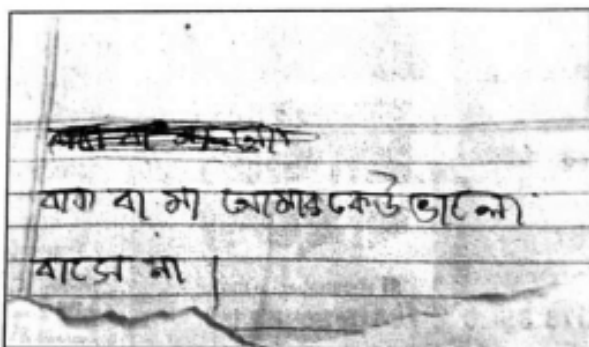 বাবা বা মা আমার কেউ ভালো
বাসে না।